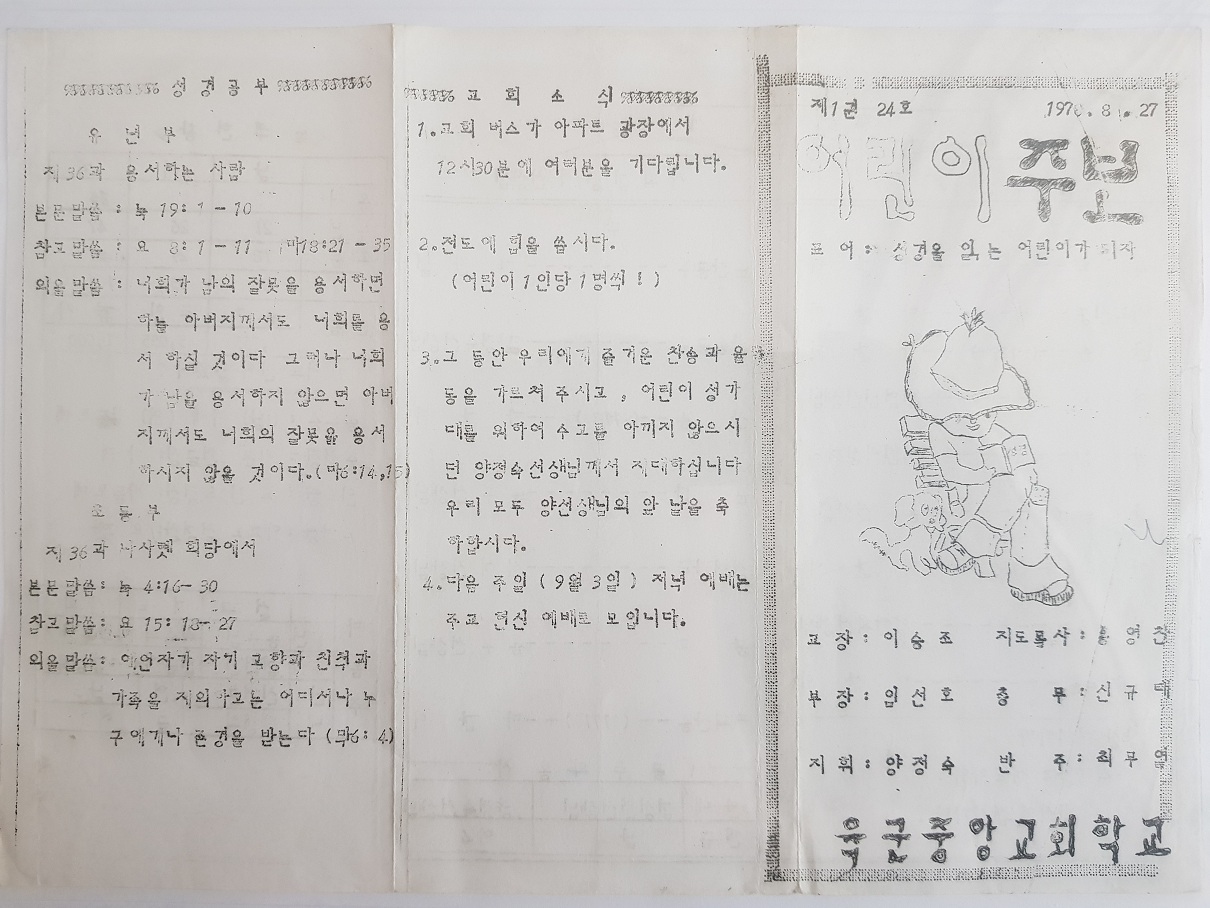 성 경 공 부
유 년 부
제36과 용서하는 사람
본문말씀 : 눅 19: 1 - 10
참고말씀 : 요 8: 1 - 11 마18:21 - 35
외울말씀 : 너희가 남의 잘못을 용서하면
하늘 아버지께서도 너희를 용
서 하실 것이다 그러나 너희
가 남을 용서하지 않으면 아버
지께서도 너희의 잘못을 용서
하시지 않을 것이다.(마6:14,15)
초 등 부
제36과 나사렛 회당에서
본문말씀: 눅 4:16- 30
참고말씀: 요 15: 18- 27
외울말씀: 예언자가 자기 고향과 친척과
가족을 제외하고는 어디서나 누
구에게나 존경을 받는다 (막6: 4)
교 회 소 식
1.교회 버스가 아파트 광장에서
12시30분에 여러분을 기다립니다.
2.전도에 힘을 씁시다.
(어린이1인당 1명씩 ! )
3.그 동안 우리에게 즐거운 찬송과 율
동을 가르쳐 주시고 , 어린이 성가
대를 위하여 수고를 아끼지 않으시
던 양정숙선생님께서 제대하십니다
우리 모두 양선생님의 앞 날을 축
하합시다.
4.다음 주일 ( 9월 3일 ) 저녁 예배는
주교 헌신 예배로 모입니다.
제1권 24호 1978.8.27
어린이주보
표 어: 성경을 읽는 어린이가 되자
교 장: 이 승 조 지도목사: 홍 영 찬
부 장: 임 선 호 총 무: 신 규 태
지 휘: 양 정 숙 반 주: 최
육군중앙교회학교